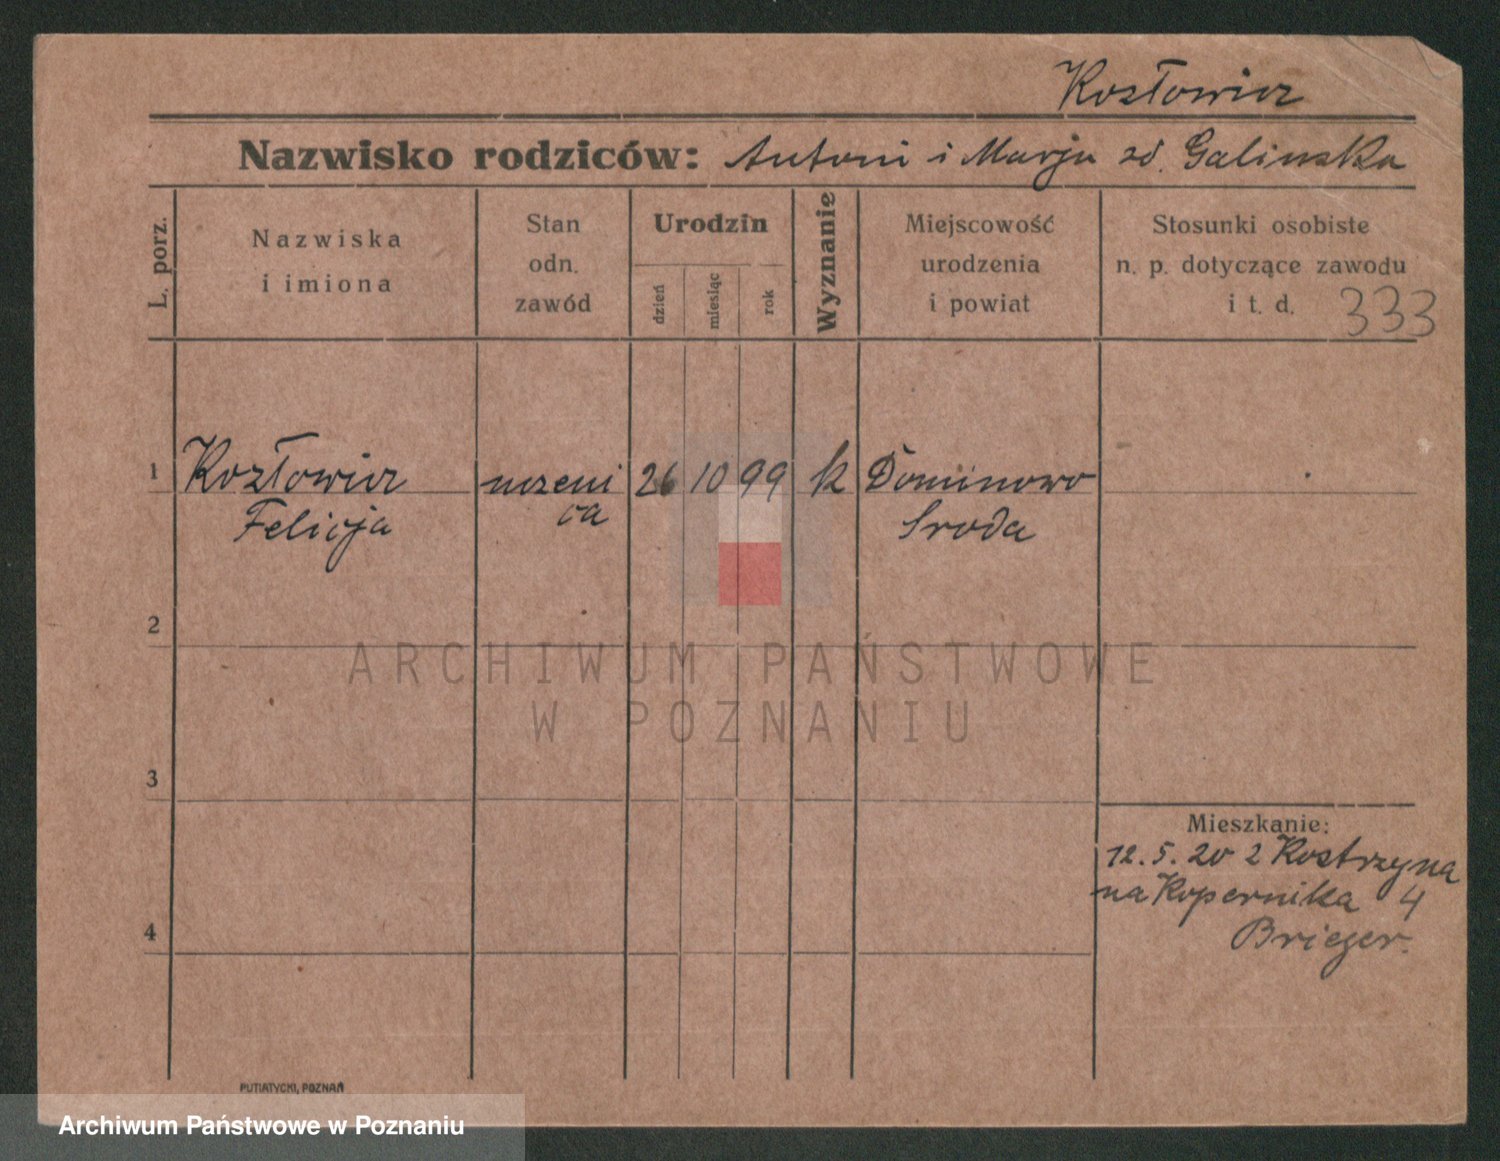 Kozłowicz
Nazwisko rodziców: Antoni i Marja zd. Galinska
L. porz.
Nazwiska
i imiona
Stan
odn.
zawód
Urodzin
dzień
miesiąc
rok
Wyznanie
Miejscowość
urodzenia
i powiat
Stosunki osobiste
n. p. dotyczące zawodu
i t. d.
333
1
Kozłowicz
Felicja
uczeni
ca
26 10 99
k
Dominowo
Sroda
2
3
4
Mieszkanie:
12. 5. 20 z Kostrzyna
na Kopernika 4
Brieger.
PUTIATYCKI, POZNAŃ
ARCHIWUM PAŃSTWOWE
W POZNANIU
Archiwum Państwowe w Poznaniu